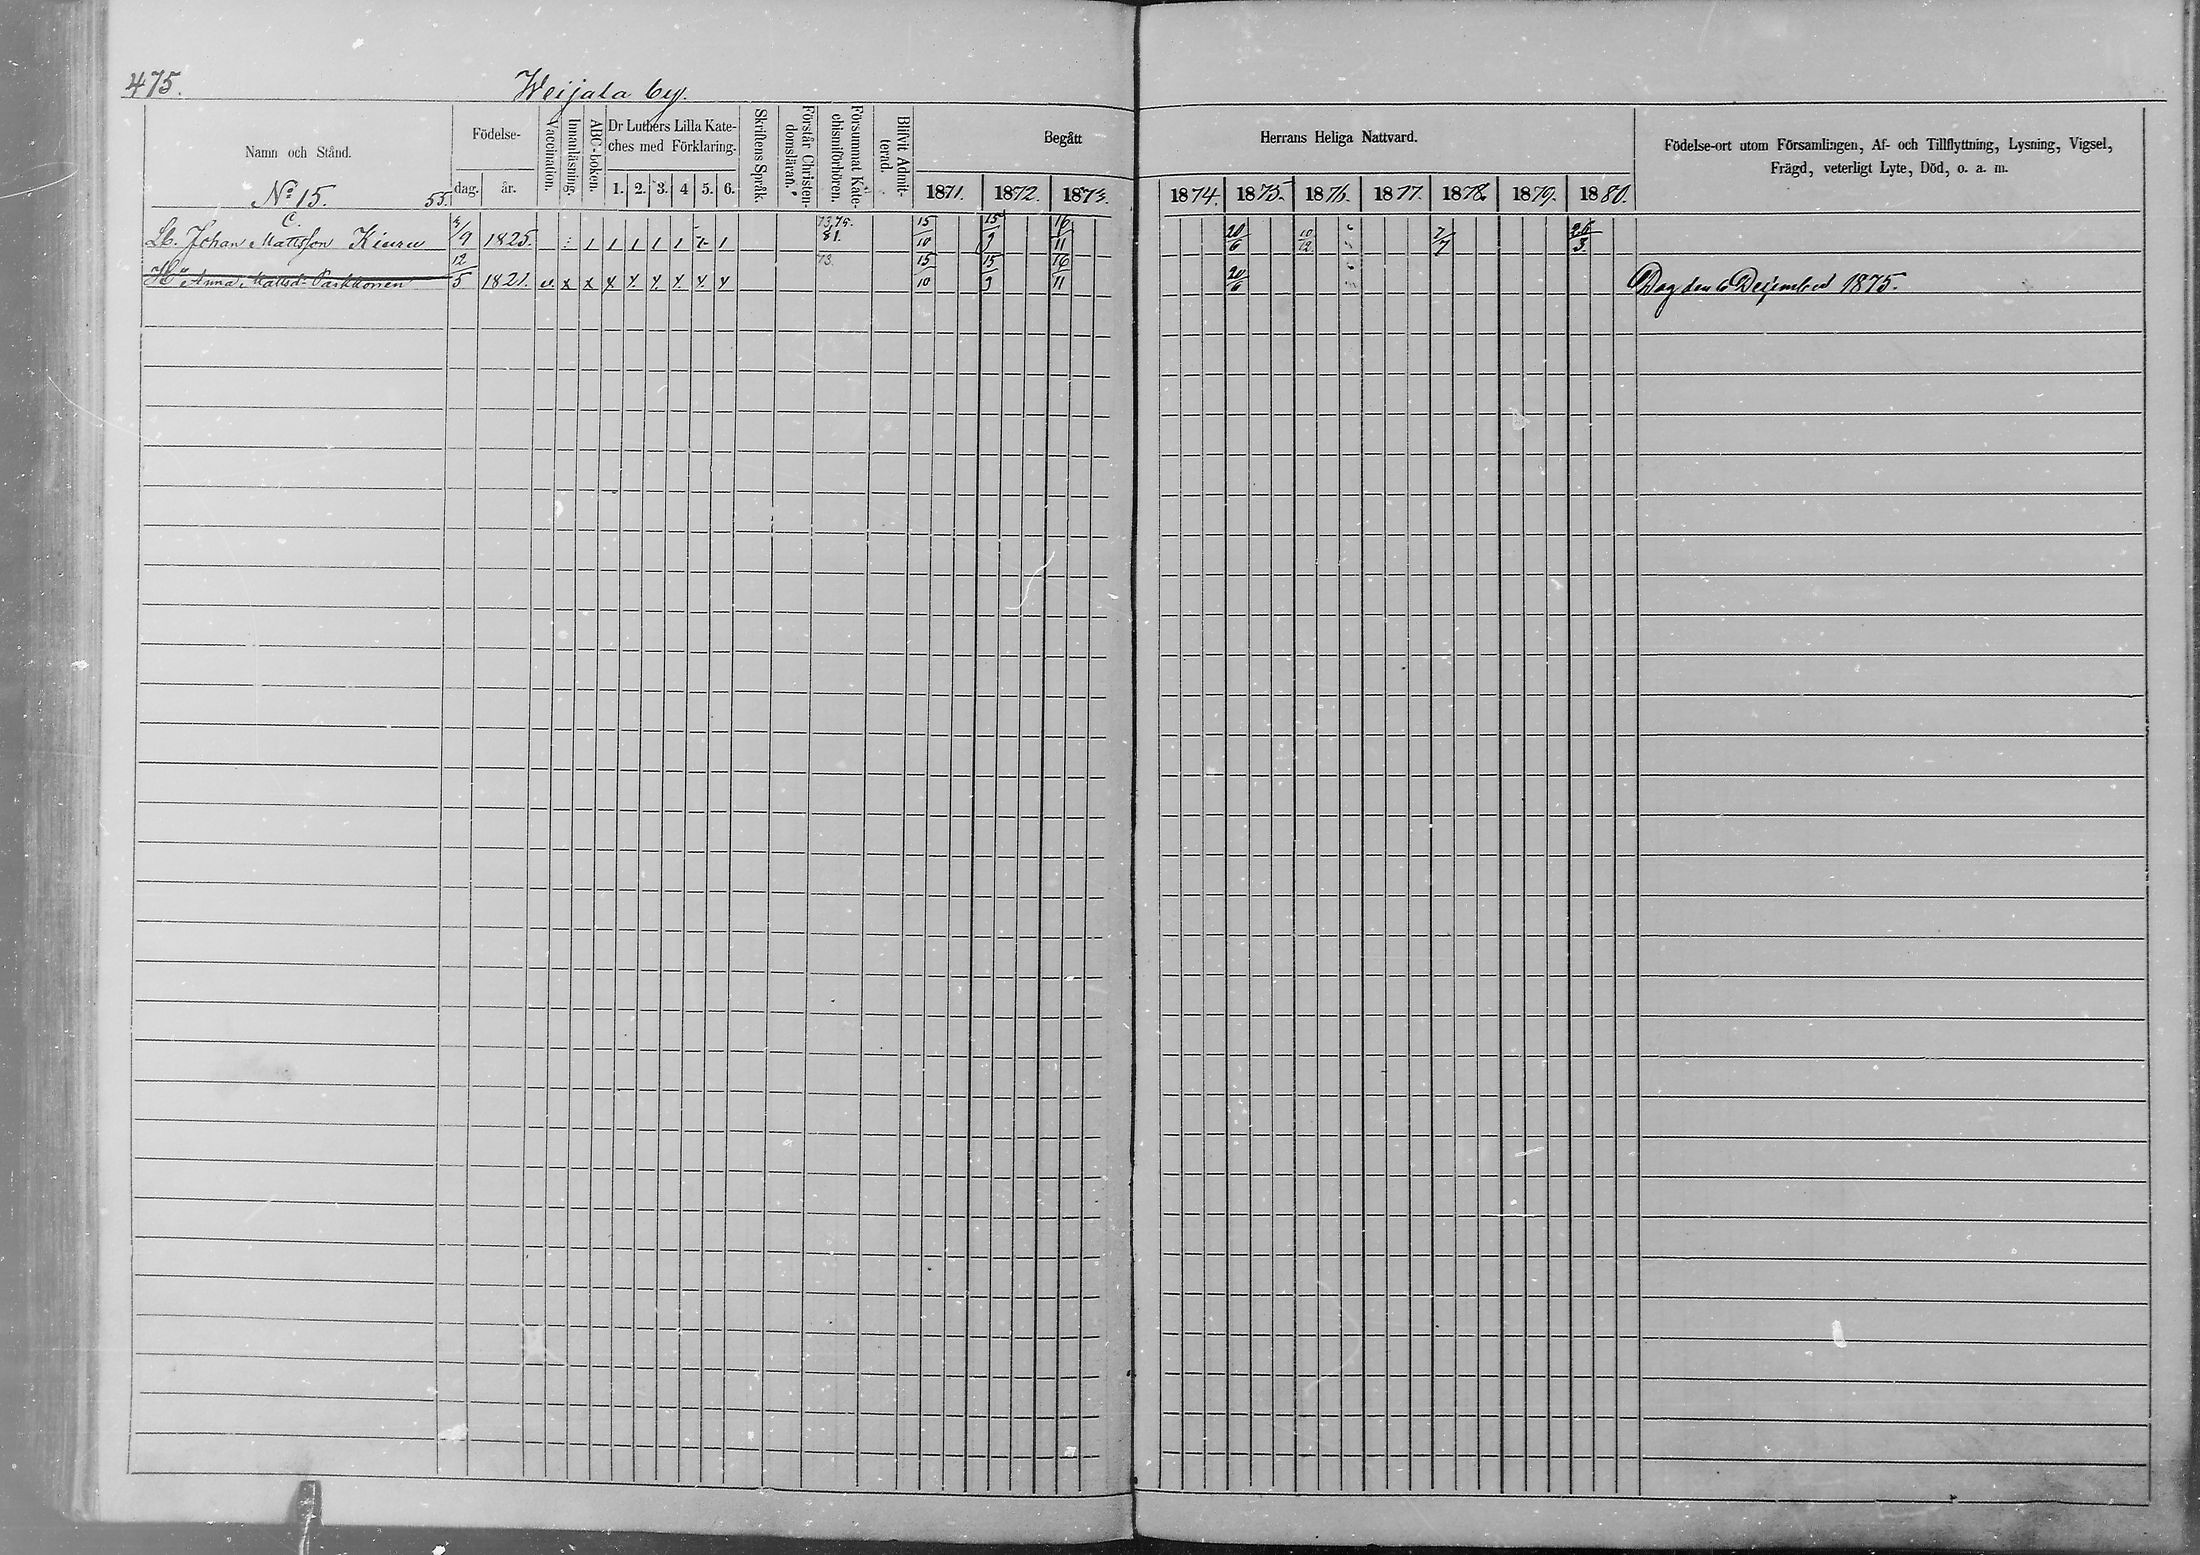 475.
Weijala by.
Namn och Stånd.
Födelse-
dag.
år.
Vaccination.
Innanläsning.
ABC-boken.
Dr Luthers Lilla Kate-
ches med Förklaring.
1. 2. 3. 4 5. 6.
Skriftens Språk.
Förstår Christen-
domsläran.
Försummat Kate-
chismiförhören.
Blifvit Admit-
terad.
Begått
1871. 1872. 1873.
Herrans Heliga Nattvard.
1874. 1875. 1876. 1877. 1878. 1879. 1880.
Födelse-ort utom Församlingen, Af- och Tillflyttning, Lysning, Vigsel,
Frägd, veterligt Lyte, Död, o. a. m.
No 15. 55.
C.
Johan Mattsson Kiuru 1825. 1 1 1 1 1 1 73,75. 81. 15/10 15/9 16/11 20/6 10/12 7/7 26/3
H. Anna Mattsd. Parkkonen 12/5 1821. v. x x x x x x x x 73. 15/10 15/9 16/11 20/6 Dog den 6 December 1875.